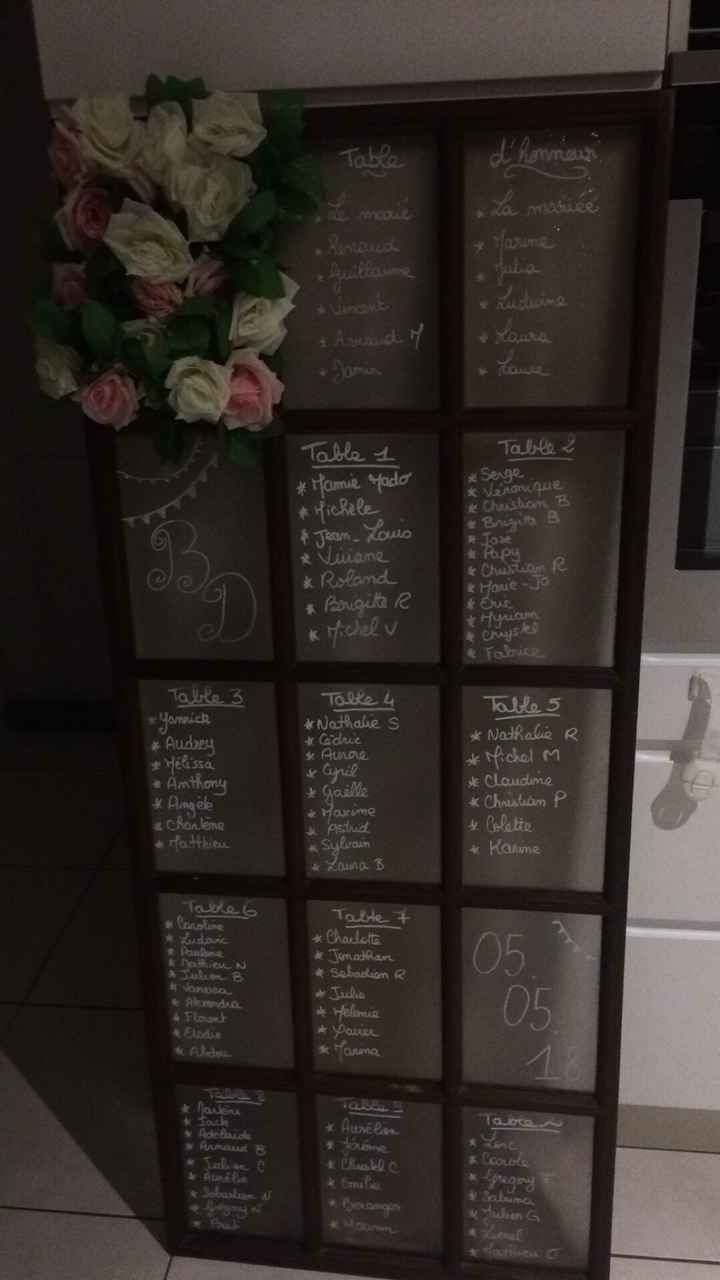 Table d'honneur
* Le marié
* Renaud
* Guillaume
* Vincent
* Arnaud M
* La mariée
* Marine
* Julie
* Ludivine
* Laura
* Laure
B
D
Table 1
* Mamie Mado
* Michèle
* Jean-Louis
* Viviane
* Roland
* Brigitte R
* Michel V
Table 2
* Serge
* Véronique
* Christian B
* Brigitte B
* José
* Papy
* Christian R
* Marie-Jo
* Eric
* Myriam
* Chrystel
* Fabrice
Table 3
* Yannick
* Audrey
* Mélissa
* Anthony
* Angèle
* Charlène
* Matthieu
Table 4
* Nathalie S
* Cédric
* Aurore
* Cyril
* Gaëlle
* Maxime
* Astrid
* Sylvain
* Laura B
Table 5
* Nathalie R
* Michel M
* Claudine
* Christian P
* Colette
* Karine
Table 6
* Caroline
* Ludovic
* Pauline
* Mathieu N
* Julien B
* Vanessa
* Alexandra
* Florent
* Elodie
* Abdou
Table 7
* Charlotte
* Jonathan
* Sebastien R
* Julie
* Mélanie
* Xavier
* Marina
05.
05.
18
Table 8
* Jack
* Adelaïde
* Arnaud B
* Julien C
* Aurélie
* Sebastien N
* Grégory N
Table 9
* Aurélien
* Jérôme
* Christel C
* Emilie
* Berenger
Table
* Loïc
* Carole
* Gregory F
* Sabrina
* Julien G
* Lionel
* Mathieu C